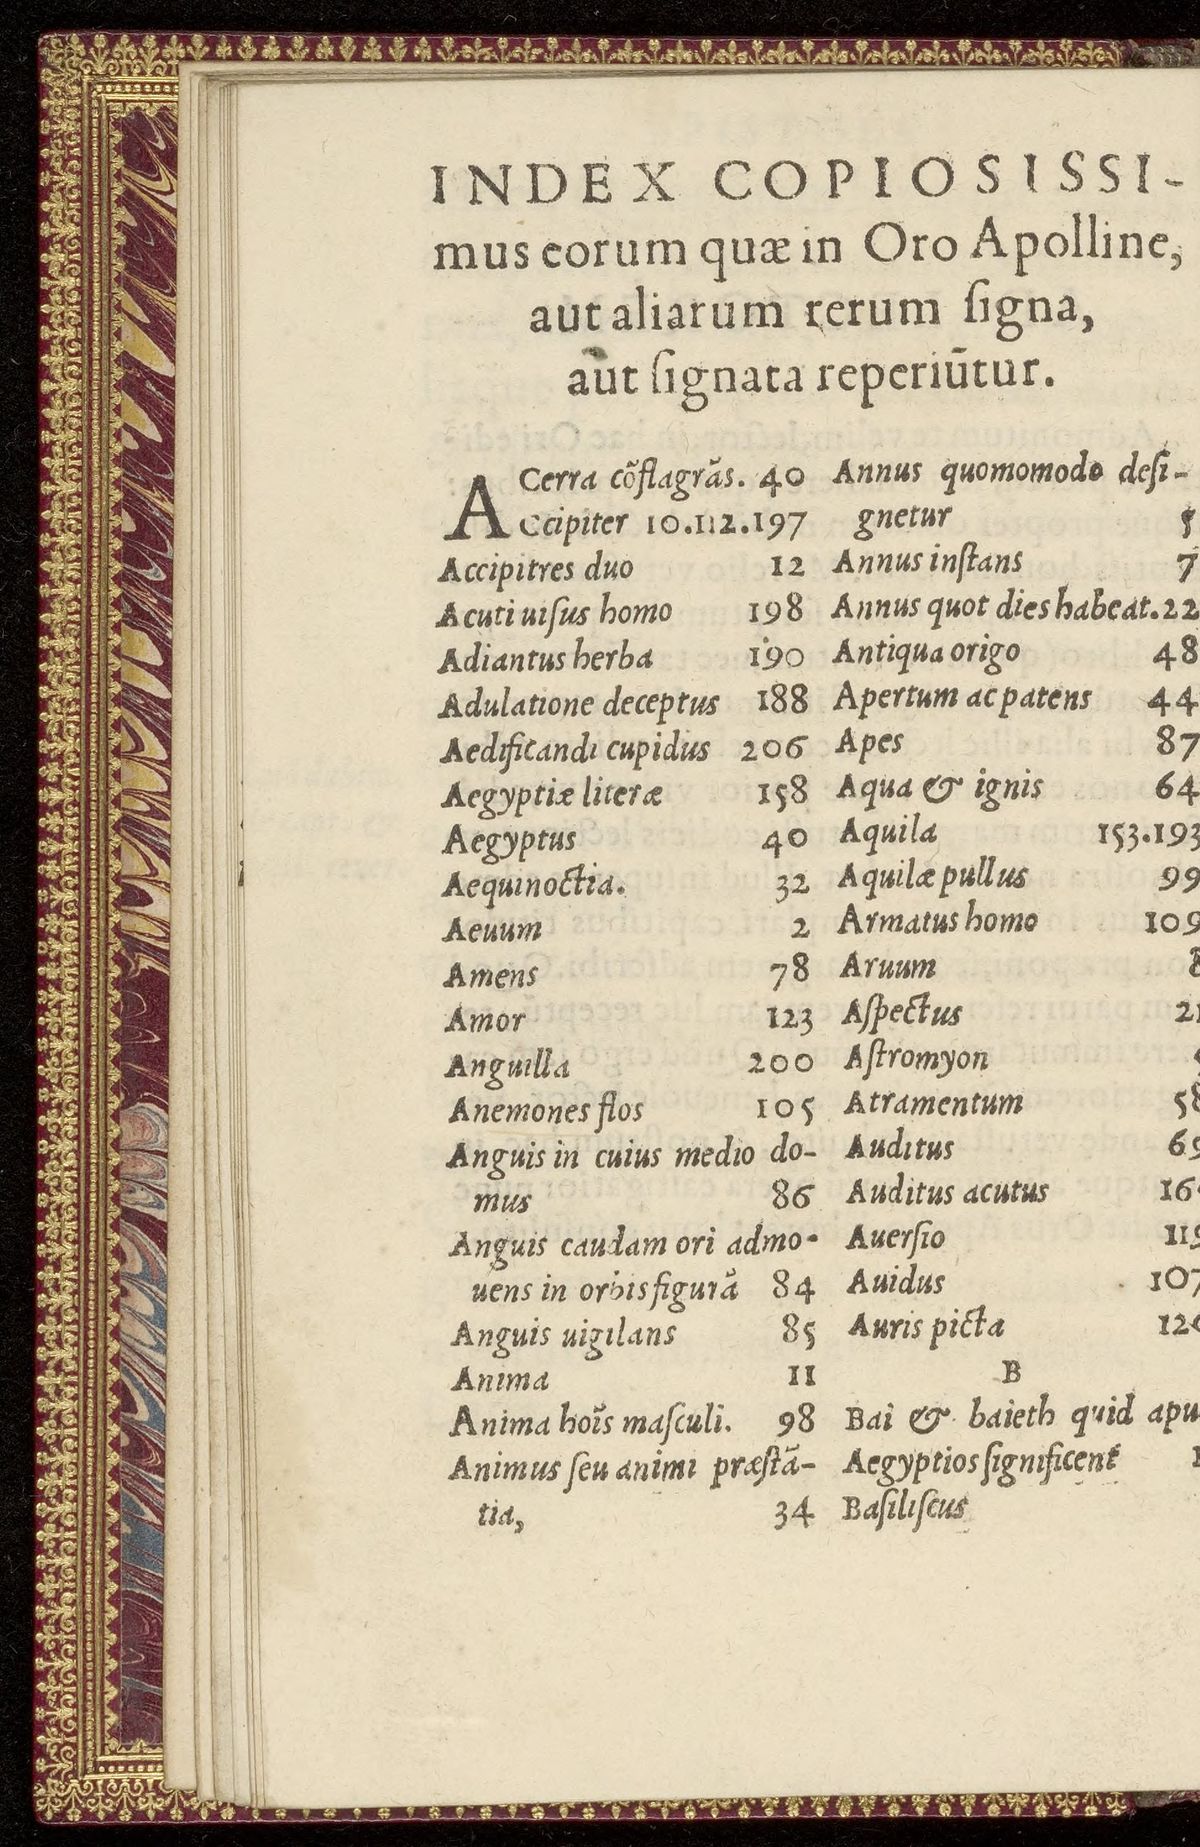 INDEX COPIOSISSI-
mus eorum quæ in Oro Apolline,
aut aliarum rerum ſigna,
aut ſignata reperiūtur.
ACerra cõflagrãs. 40
Accipiter 10.112.197
Accipitres duo 12
Acuti uiſus homo 198
Adiantus herba 190
Adulatione deceptus 188
Aedificandi cupidus 206
Aegyptiæ literæ 158
Aegyptus 40
Aequinoctia. 32
Aeuum 2
Amens 78
Amor 123
Anguilla 200
Anemones flos 105
Anguis in cuius medio do-
mus 86
Anguis caudam ori admo-
uens in orbis figurã 84
Anguis uigilans 85
Anima 11
Anima hoĩs maſculi. 98
Animus ſeu animi præſtã-
tia, 34
Annus quomomodo deſi-
gnetur 5
Annus inſtans 7
Annus quot dies habeat. 22
Antiqua origo 48
Apertum ac patens 44
Apes 87
Aqua & ignis 64
Aquila 153.193
Aquilæ pullus 99
Armatus homo 109
Aruum
Aſpectus 21
Aſtromyon
Atramentum 58
Auditus 69
Auditus acutus
Auerſio 119
Auidus 107
Auris picta
B
Bai & baieth quid apu
Aegyptios ſignificent
Baſiliſcus